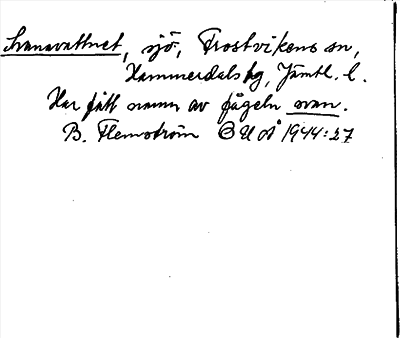 Svanavattnet, sjö, Frostvikens sn,
Hammerdals tg, Jämtl. l.
Har fått namn av fågeln svan.
B. Flemström OUÅ 1944:27